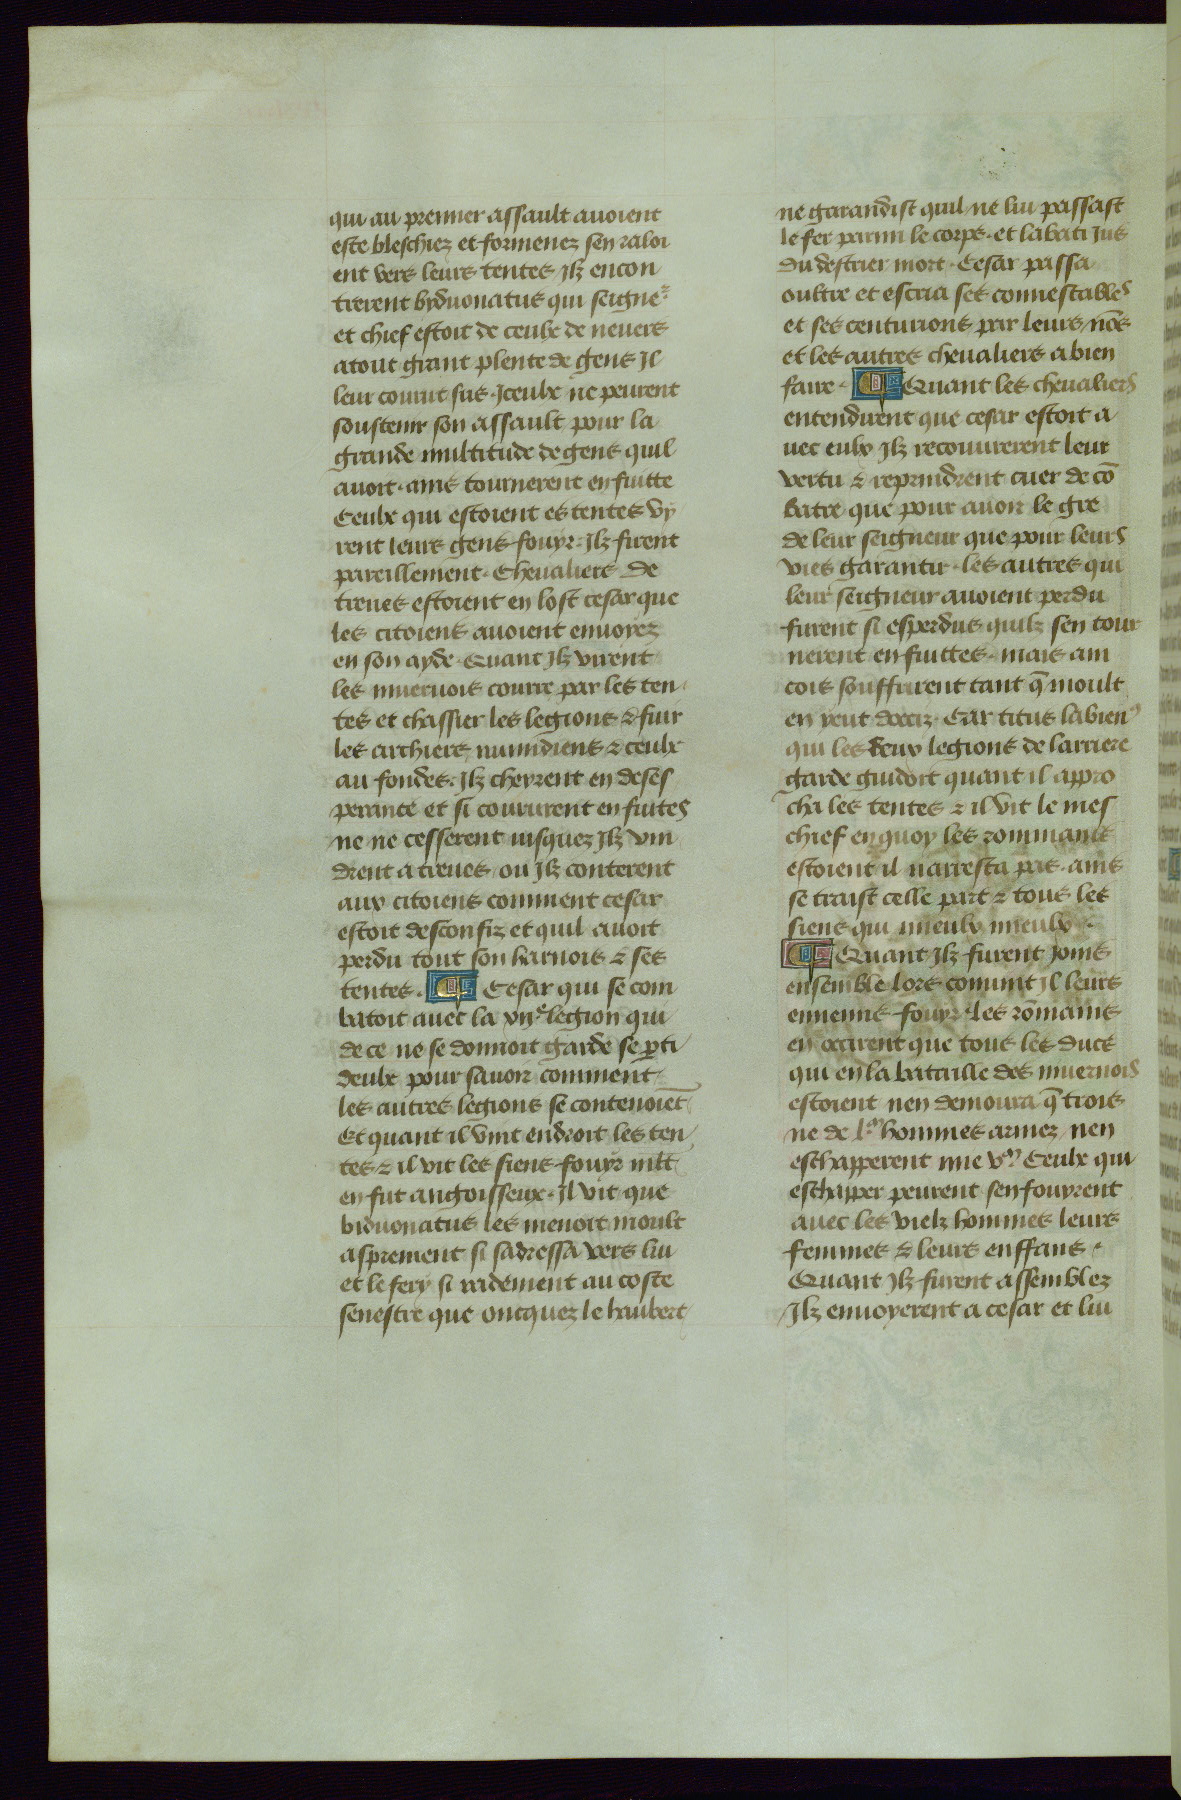 qui au premier assault auoient
este bleschiez et formenez sen raloi
ent vers leurs tentes Jlz encon
trerent byduonatus qui seigne᷑
et chief estoit de ceulx de neuers
atout grant plente de gens Jl
leur courut sus. Jceulx ne peurent
soustenir son assault pour la
grande multitude de gens quil
auoit. ains tournerent en fuitte
Ceulx qui estoient es tentes vy
rent leurs gens fouyr. Jlz firent
pareillement. Cheualiers de
treues estoient en lost cesar que
les citoiens auoient enuoyez
en son ayde. Quant Jlz virent
les niuernois courre par les ten
tes et chassier les legions & fuir
les archiers numidiens & ceulx
au fondes. Jlz cheyrent en deses
perance et si coururent en fuites
ne ne cesserent iusquez Jlz vin
drent a treues ou Jlz conterent
aux citoiens comment cesar
estoit desconfiz et quil auoit
perdu tout son harnois & ses
tentes. ¶ Cesar qui se com
batoit auec la xijᵉ legion qui
de ce ne se donnoit garde se p̱ti
deulx pour sauoir comment
les autres legions se contenoiēt
Et quant il vint endroit les ten
tes & il vit les siens fouyr mlt̄
en fut angoisseux. Jl vit que
biduonatus les menoit moult
asprement si sadressa vers lui
et le fery si radement au coste
senestre que oncquez le haubert
ne garandist quil ne lui passast
le fer parmi le corps. et labati jus
du destrier mort. Cesar passa
oultre et escria ses connestables
et ses centurions par leurs nōs
et les autres cheualiers a bien
faire. ¶ Quant les cheualiers
entendirent que cesar estoit a
uec eulx Jlz recouurerent leur
vertu & reprindrent cuer de cō
batre que pour auoir le gre
de leur seigneur que pour leurs
vies garantir. les autres qui
leur seigneur auoient perdu
furent si esperdus quilz sen tour
nerent en fuittes. mais ain
cois souffrirent tant q̄ moult
en yeut docciz. Car titus labien⁹
qui les deux legions de larriere
garde guidoit quant il appro
cha les tentes & il vit le mes
chief en quoy les rommains
estoient il narresta pas. ains
se traist celle part & tous les
siens qui mieulx mieulx.
¶ Quant Jlz furent joins
ensemble lors conuint Jl leurs
ennemis fouyr. les rōmains
en occirent que tous les ducs
qui en la bataille des niuernois
estoient nen demoura q̄ trois
ne de lᵐ hommes armez nen
eschapperent mie vᶜ. Ceulx qui
eschapper peurent sen fouyrent
auec les vielz hommes leurs
femmes & leurs enffans.
Quant Jlz furent assemblez
Jlz enuoyerent a cesar et lui